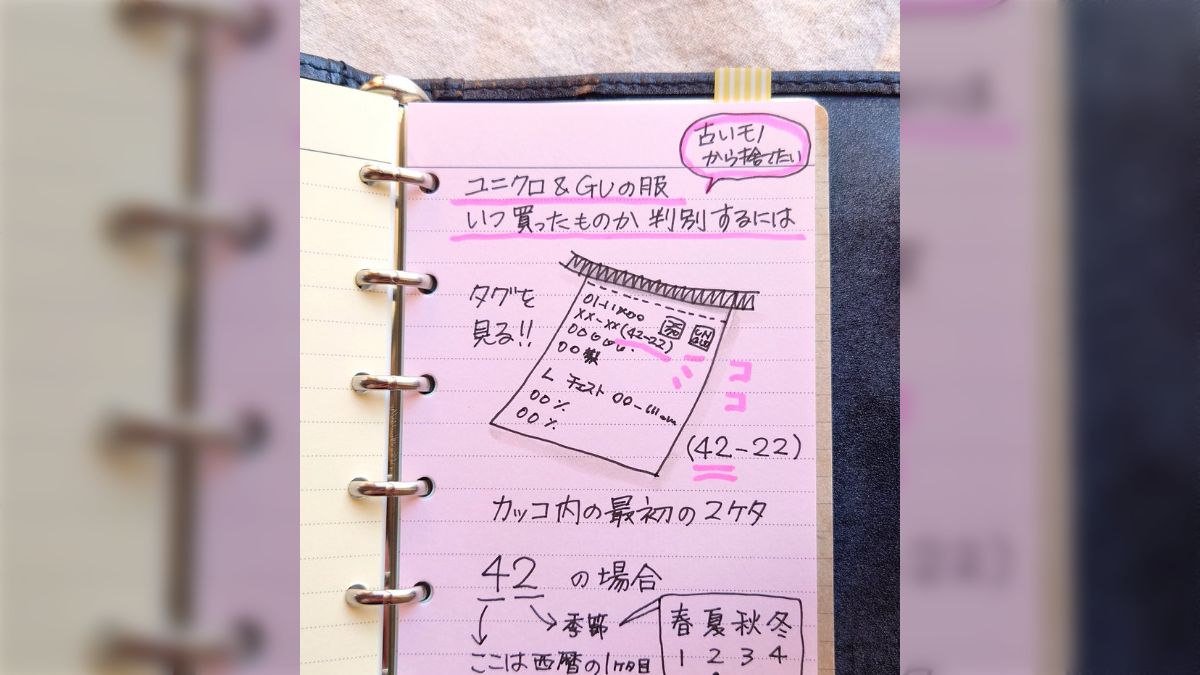 古いモノ
から捨てたい
ユニクロ&GUの服
いつ買ったものか判別するには
タグを
見る!!
01-11×00
××-××(42-22)
ユニ
クロ
UNI
QLO
00製
L チェスト 00-
00%
00%
ココ
(42-22)
カッコ内の最初の2ケタ
42 の場合
季節
春夏秋冬
1 2 3 4
ここは西暦の1ケタ目